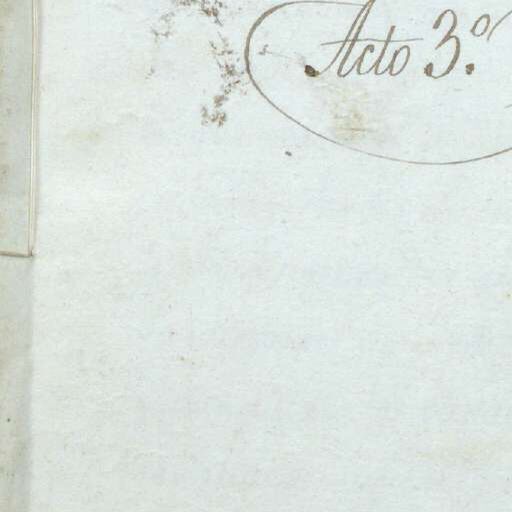 Acto 3.º